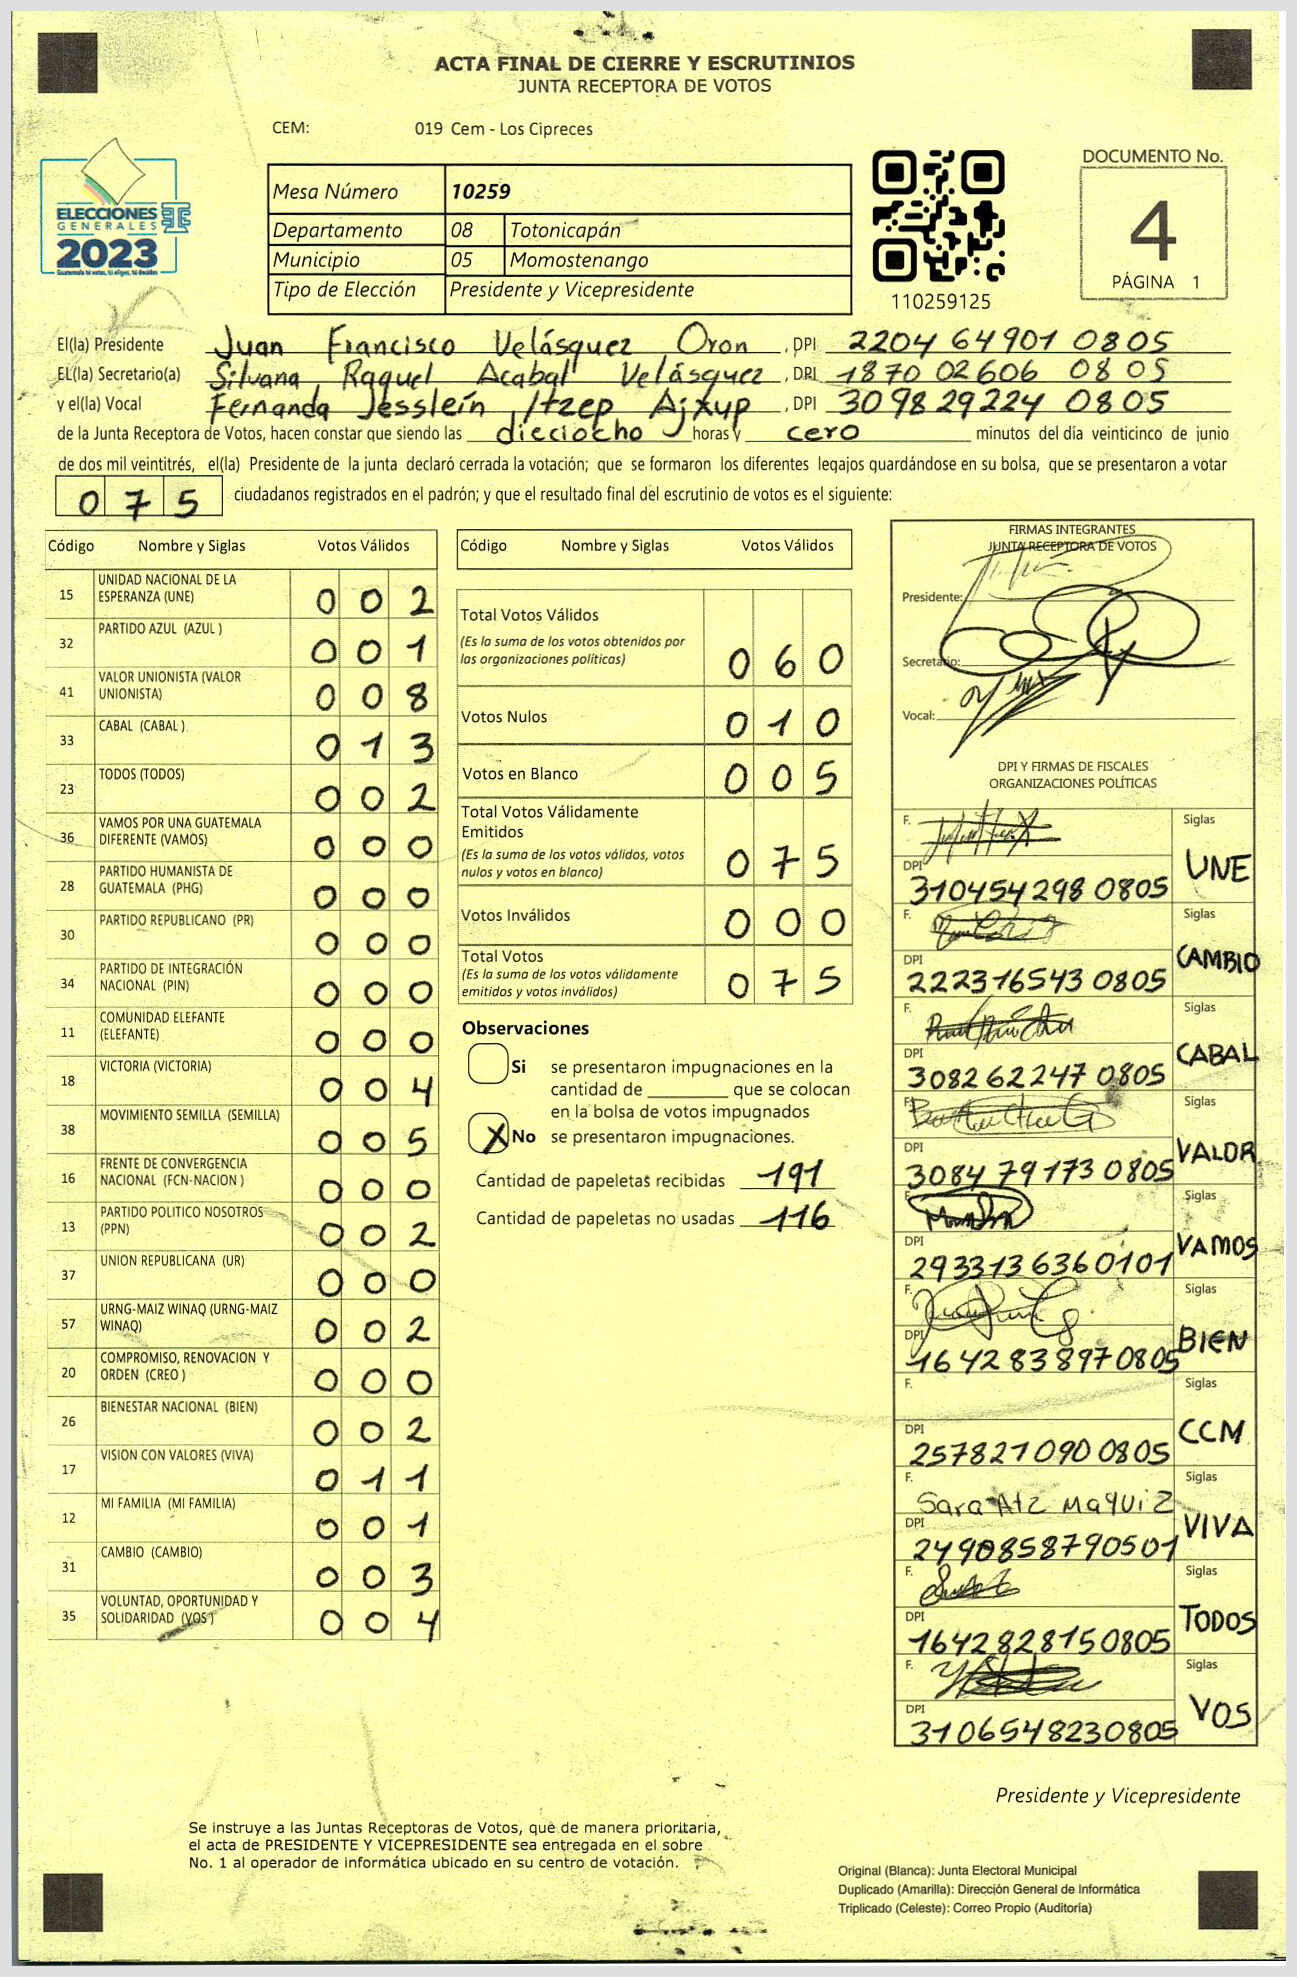 ACTA FINAL DE CIERRE Y ESCRUTINIOS
JUNTA RECEPTORA DE VOTOS
CEM: 019 Cem - Los Cipreces
ELECCIONES
GENERALES
2023
Guatemala tú votas, tú eliges, tú decides
Mesa Número 10259
Departamento 08 Totonicapán
Municipio 05 Momostenango
Tipo de Elección Presidente y Vicepresidente
110259125
DOCUMENTO No.
4
PÁGINA 1
El(la) Presidente Juan Francisco Velásquez Oron , DPI 2204 64901 0805
EL(la) Secretario(a) Silvana Raquel Acabal Velásquez , DPI 1870 02606 0805
y el(la) Vocal Fernanda Jessleín Itzep Ajxup , DPI 3098 29224 0805
de la Junta Receptora de Votos, hacen constar que siendo las dieciocho horas y cero minutos del día veinticinco de junio
de dos mil veintitrés, el(la) Presidente de la junta declaró cerrada la votación; que se formaron los diferentes legajos guardándose en su bolsa, que se presentaron a votar
075 ciudadanos registrados en el padrón; y que el resultado final del escrutinio de votos es el siguiente:
Código Nombre y Siglas Votos Válidos
15 UNIDAD NACIONAL DE LA ESPERANZA (UNE) 002
32 PARTIDO AZUL (AZUL ) 001
41 VALOR UNIONISTA (VALOR UNIONISTA) 008
33 CABAL (CABAL ) 013
23 TODOS (TODOS) 002
36 VAMOS POR UNA GUATEMALA DIFERENTE (VAMOS) 000
28 PARTIDO HUMANISTA DE GUATEMALA (PHG) 000
30 PARTIDO REPUBLICANO (PR) 000
34 PARTIDO DE INTEGRACIÓN NACIONAL (PIN) 000
11 COMUNIDAD ELEFANTE (ELEFANTE) 000
18 VICTORIA (VICTORIA) 004
38 MOVIMIENTO SEMILLA (SEMILLA) 005
16 FRENTE DE CONVERGENCIA NACIONAL (FCN-NACION ) 000
13 PARTIDO POLITICO NOSOTROS (PPN) 002
37 UNION REPUBLICANA (UR) 000
57 URNG-MAIZ WINAQ (URNG-MAIZ WINAQ) 002
20 COMPROMISO, RENOVACION Y ORDEN (CREO ) 000
26 BIENESTAR NACIONAL (BIEN) 002
17 VISION CON VALORES (VIVA) 011
12 MI FAMILIA (MI FAMILIA) 001
31 CAMBIO (CAMBIO) 003
35 VOLUNTAD, OPORTUNIDAD Y SOLIDARIDAD (VOS ) 004
Código Nombre y Siglas Votos Válidos
Total Votos Válidos 060
(Es la suma de los votos obtenidos por
las organizaciones políticas)
Votos Nulos 010
Votos en Blanco 005
Total Votos Válidamente
Emitidos 075
(Es la suma de los votos válidos, votos
nulos y votos en blanco)
Votos Inválidos 000
Total Votos 075
(Es la suma de los votos válidamente
emitidos y votos inválidos)
Observaciones
Si se presentaron impugnaciones en la
cantidad de ________ que se colocan
en la bolsa de votos impugnados
X No se presentaron impugnaciones.
Cantidad de papeletas recibidas 191
Cantidad de papeletas no usadas 116
FIRMAS INTEGRANTES
JUNTA RECEPTORA DE VOTOS
Presidente:
Secretario:
Vocal:
DPI Y FIRMAS DE FISCALES
ORGANIZACIONES POLÍTICAS
F. Siglas
DPI 310454298 0805 UNE
F. Siglas
DPI 222316543 0805 CAMBIO
F. Siglas
DPI 308262247 0805 CABAL
F. Siglas
DPI 3084 79173 0805 VALOR
F. Siglas
DPI 2933136360101 VAMOS
F. Siglas
DPI 1642838970805 BIEN
F. Siglas
DPI 257821090 0805 CCM
F. Sara Atz Maquiz Siglas
DPI 2490858790501 VIVA
F. Siglas
DPI 1642828150805 TODOS
F. Siglas
DPI 3106548230805 VOS
Presidente y Vicepresidente
Se instruye a las Juntas Receptoras de Votos, que de manera prioritaria,
el acta de PRESIDENTE Y VICEPRESIDENTE sea entregada en el sobre
No. 1 al operador de informática ubicado en su centro de votación.
Original (Blanca): Junta Electoral Municipal
Duplicado (Amarilla): Dirección General de Informática
Triplicado (Celeste): Correo Propio (Auditoría)